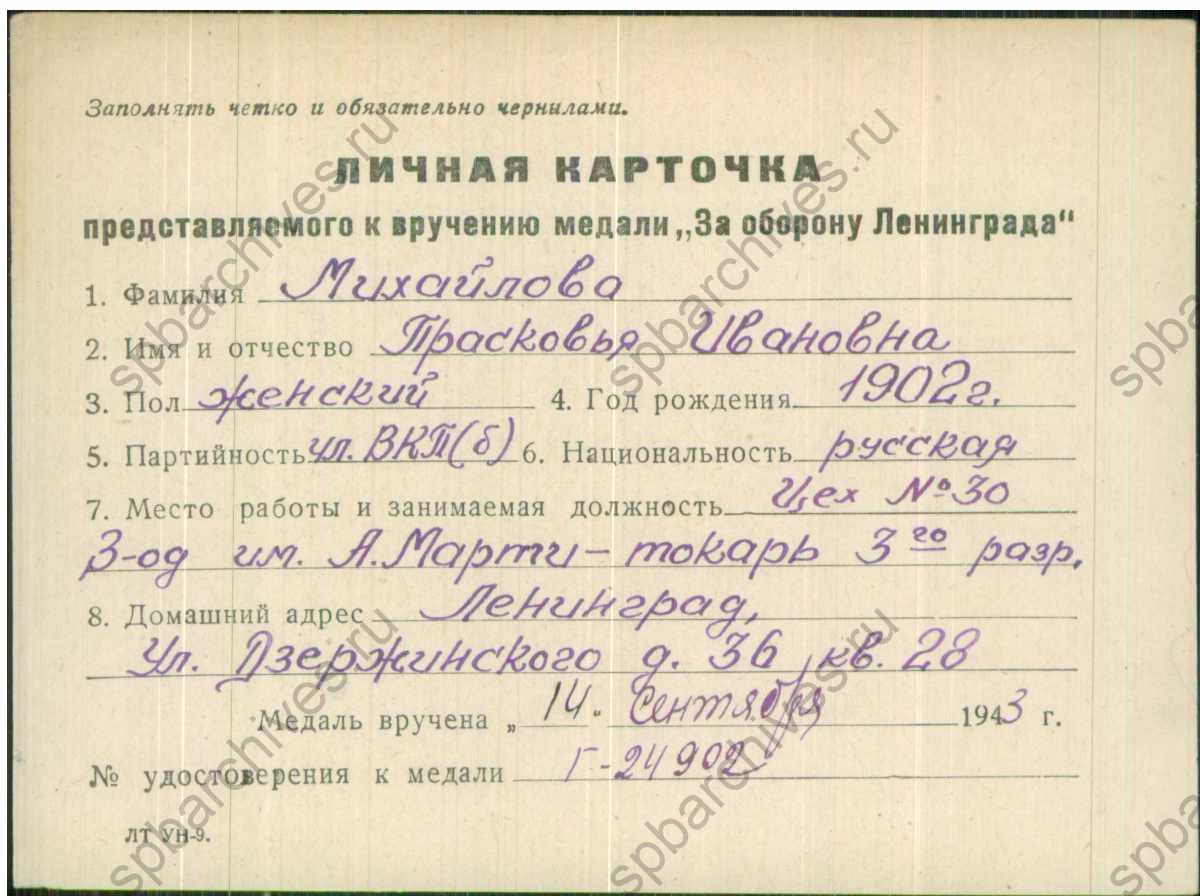 Заполнять четко и обязательно чернилами.
ЛИЧНАЯ КАРТОЧКА
представляемого к вручению медали „За оборону Ленинграда“
1. Фамилия Михайлова
2. Имя и отчество Прасковья Ивановна
3. Пол женский 4. Год рождения 1902г.
5. Партийность чл. ВКП(б) 6. Национальность русская
7. Место работы и занимаемая должность Цех №30
З-од им. А.Марти – токарь 3го разр.
8. Домашний адрес Ленинград,
Ул. Дзержинского д. 36, кв. 28
Медаль вручена „14“ Сентября 1943 г.
№ удостоверения к медали Г-24902
ЛТ УН-9.
spbarchives.ru